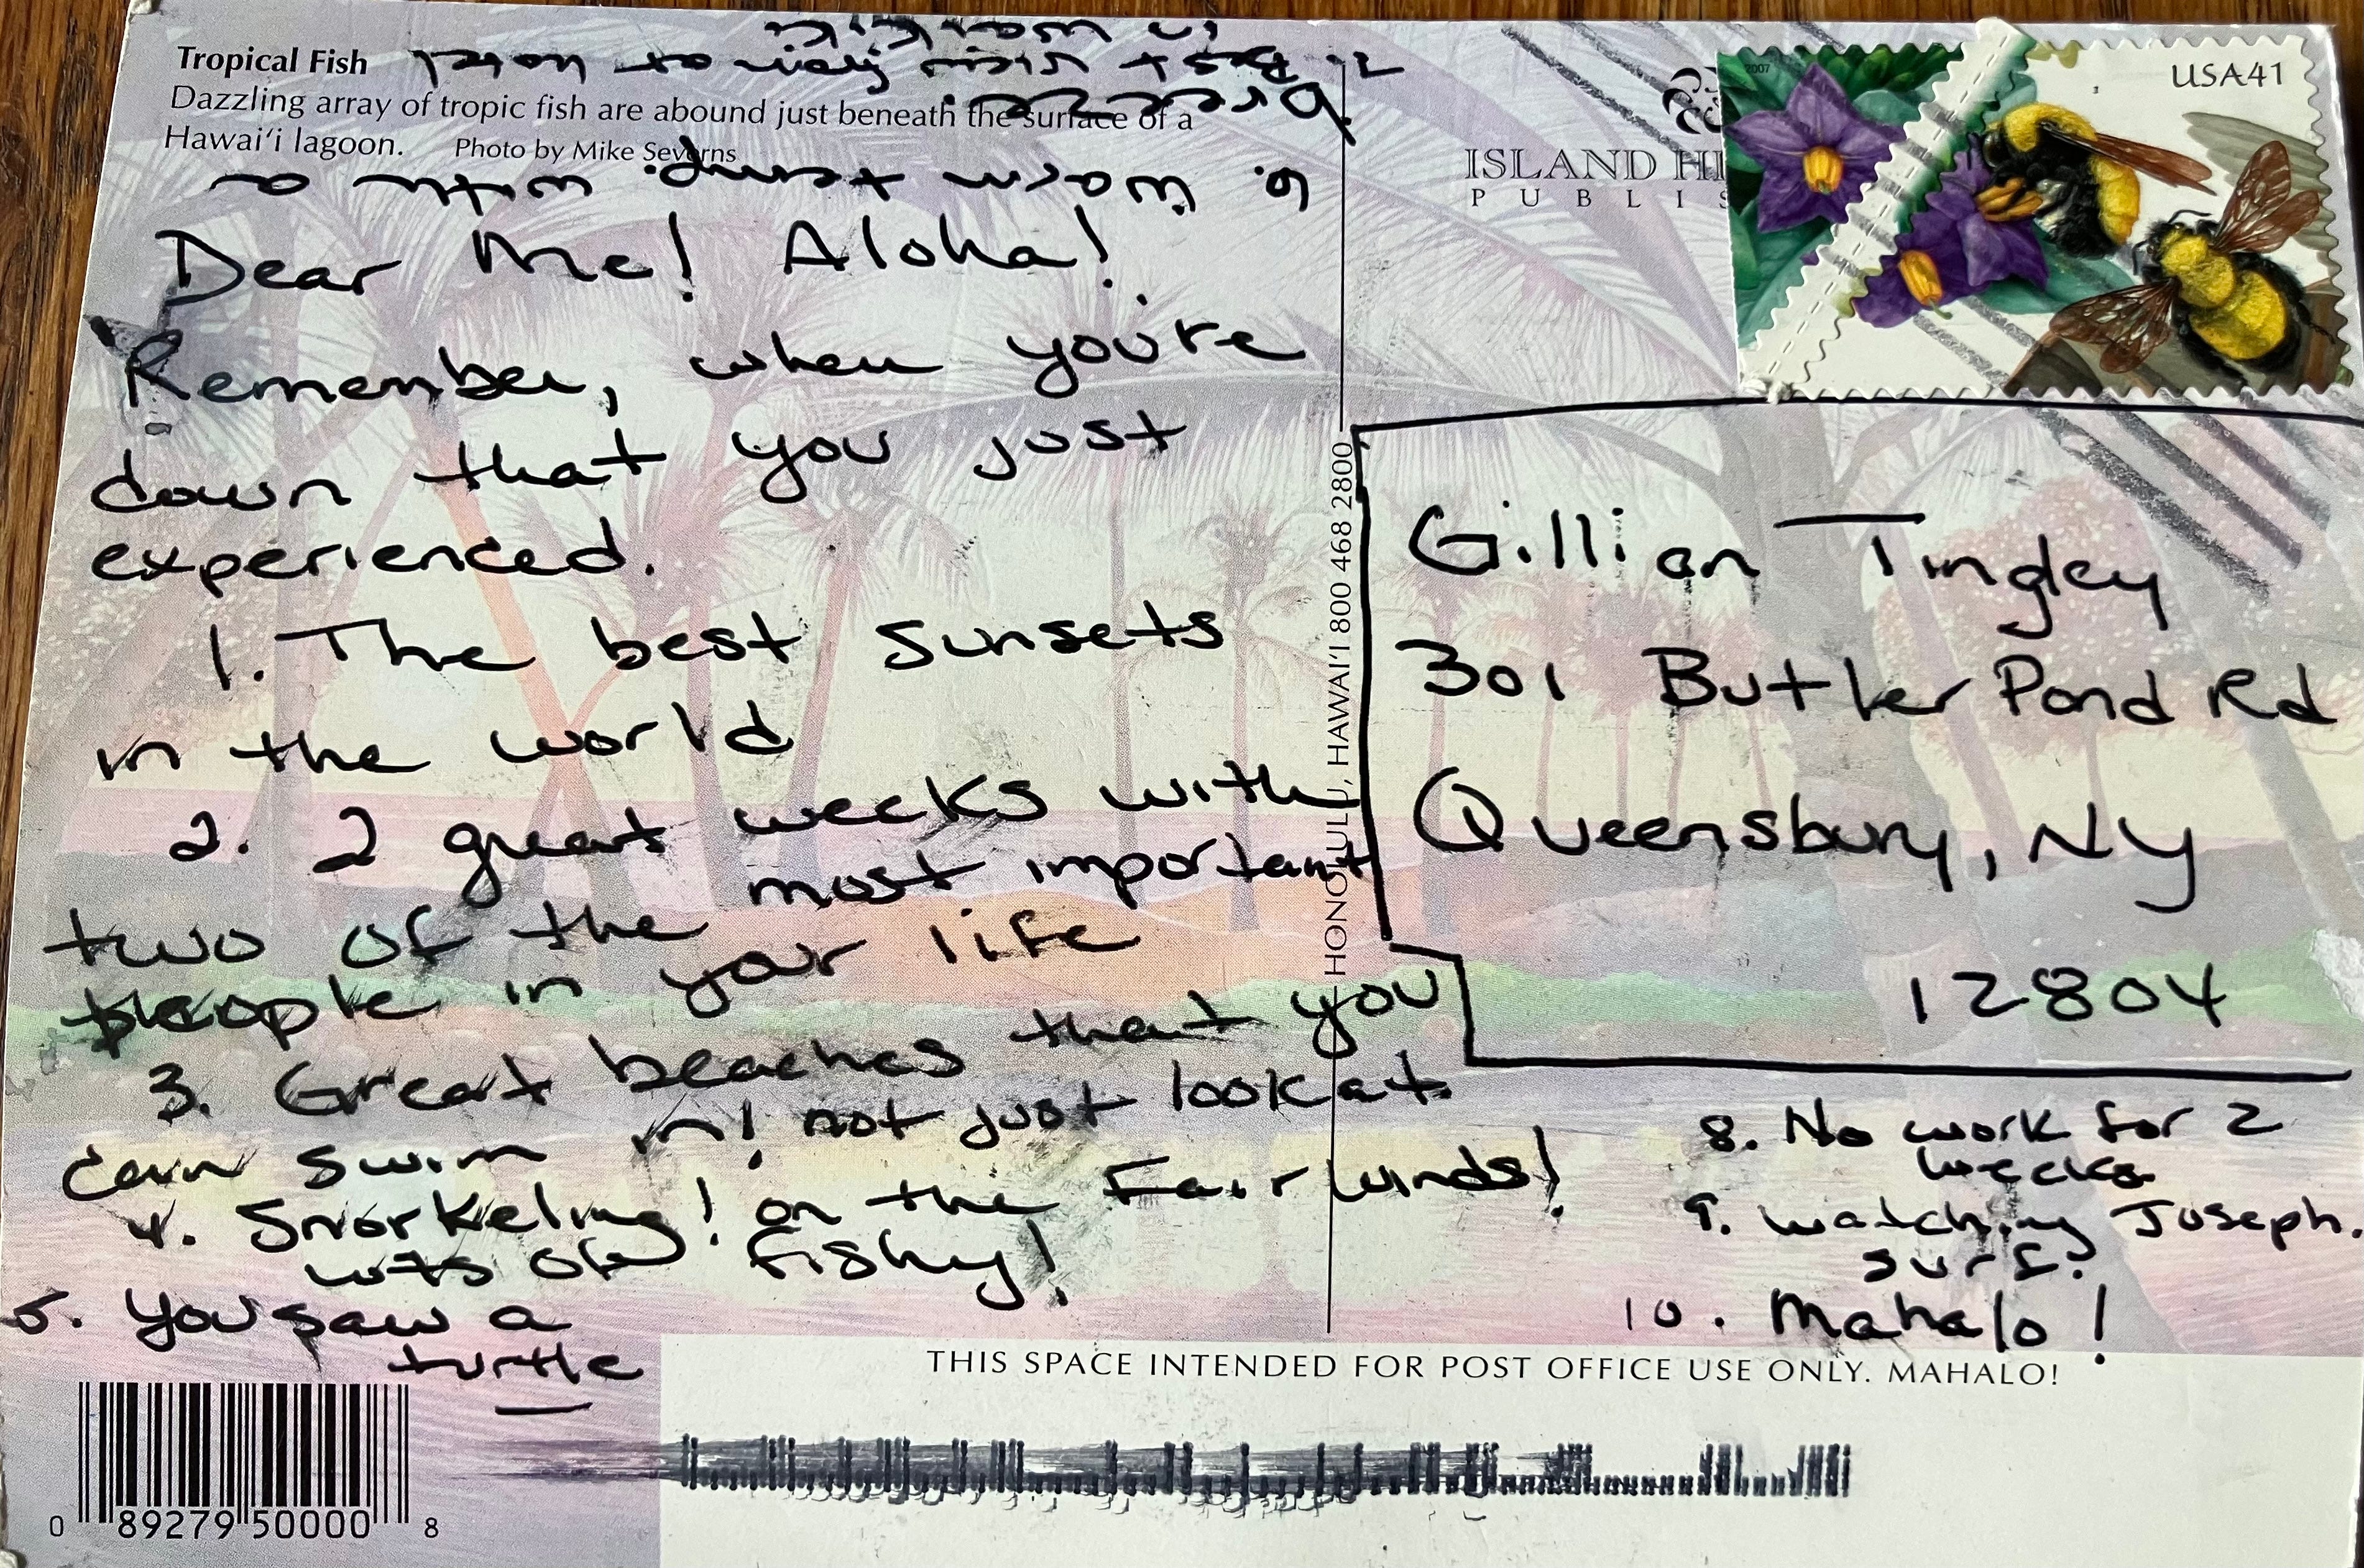 Tropical Fish
Dazzling array of tropic fish are abound just beneath the surface of a
Hawai‘i lagoon. Photo by Mike Severns
ISLAND
PUBLIS
2007
USA41
Dear Me! Aloha!
Remember, when you're
down that you just
experienced.
1. The best sunsets
in the world
2. 2 great weeks with
two of the most important
people in your life
3. Great beaches that you
can swim in! not just look at.
4. Snorkeling! on the Fair Winds!
lots of fishy!
5. You saw a
turtle
6. Warm temp. with a
breeze.
7. Best view from a hotel
in
8. No work for 2
weeks
9. Watching Joseph
surf.
10. Mahalo!
Gillian Tingley
301 Butler Pond Rd
Queensbury, NY
12804
HONOLULU, HAWAI‘I 800 468 2800
THIS SPACE INTENDED FOR POST OFFICE USE ONLY. MAHALO!
0 89279 50000 8